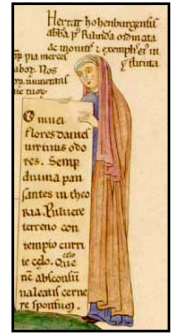 Herrat hohenburgensis
abba p' Rilinda ordinata
ac monit' & exempl' ei' in
pia merces stituta
labor. Nos
numerans
O nivei
flores dantes
virtutis odo
res. Semp
divina pau
santes in theo
ria. Pulvere
terreno con
tempto curri
te celo. Que
nc absconsū
valeatis cerne
re sponsum.